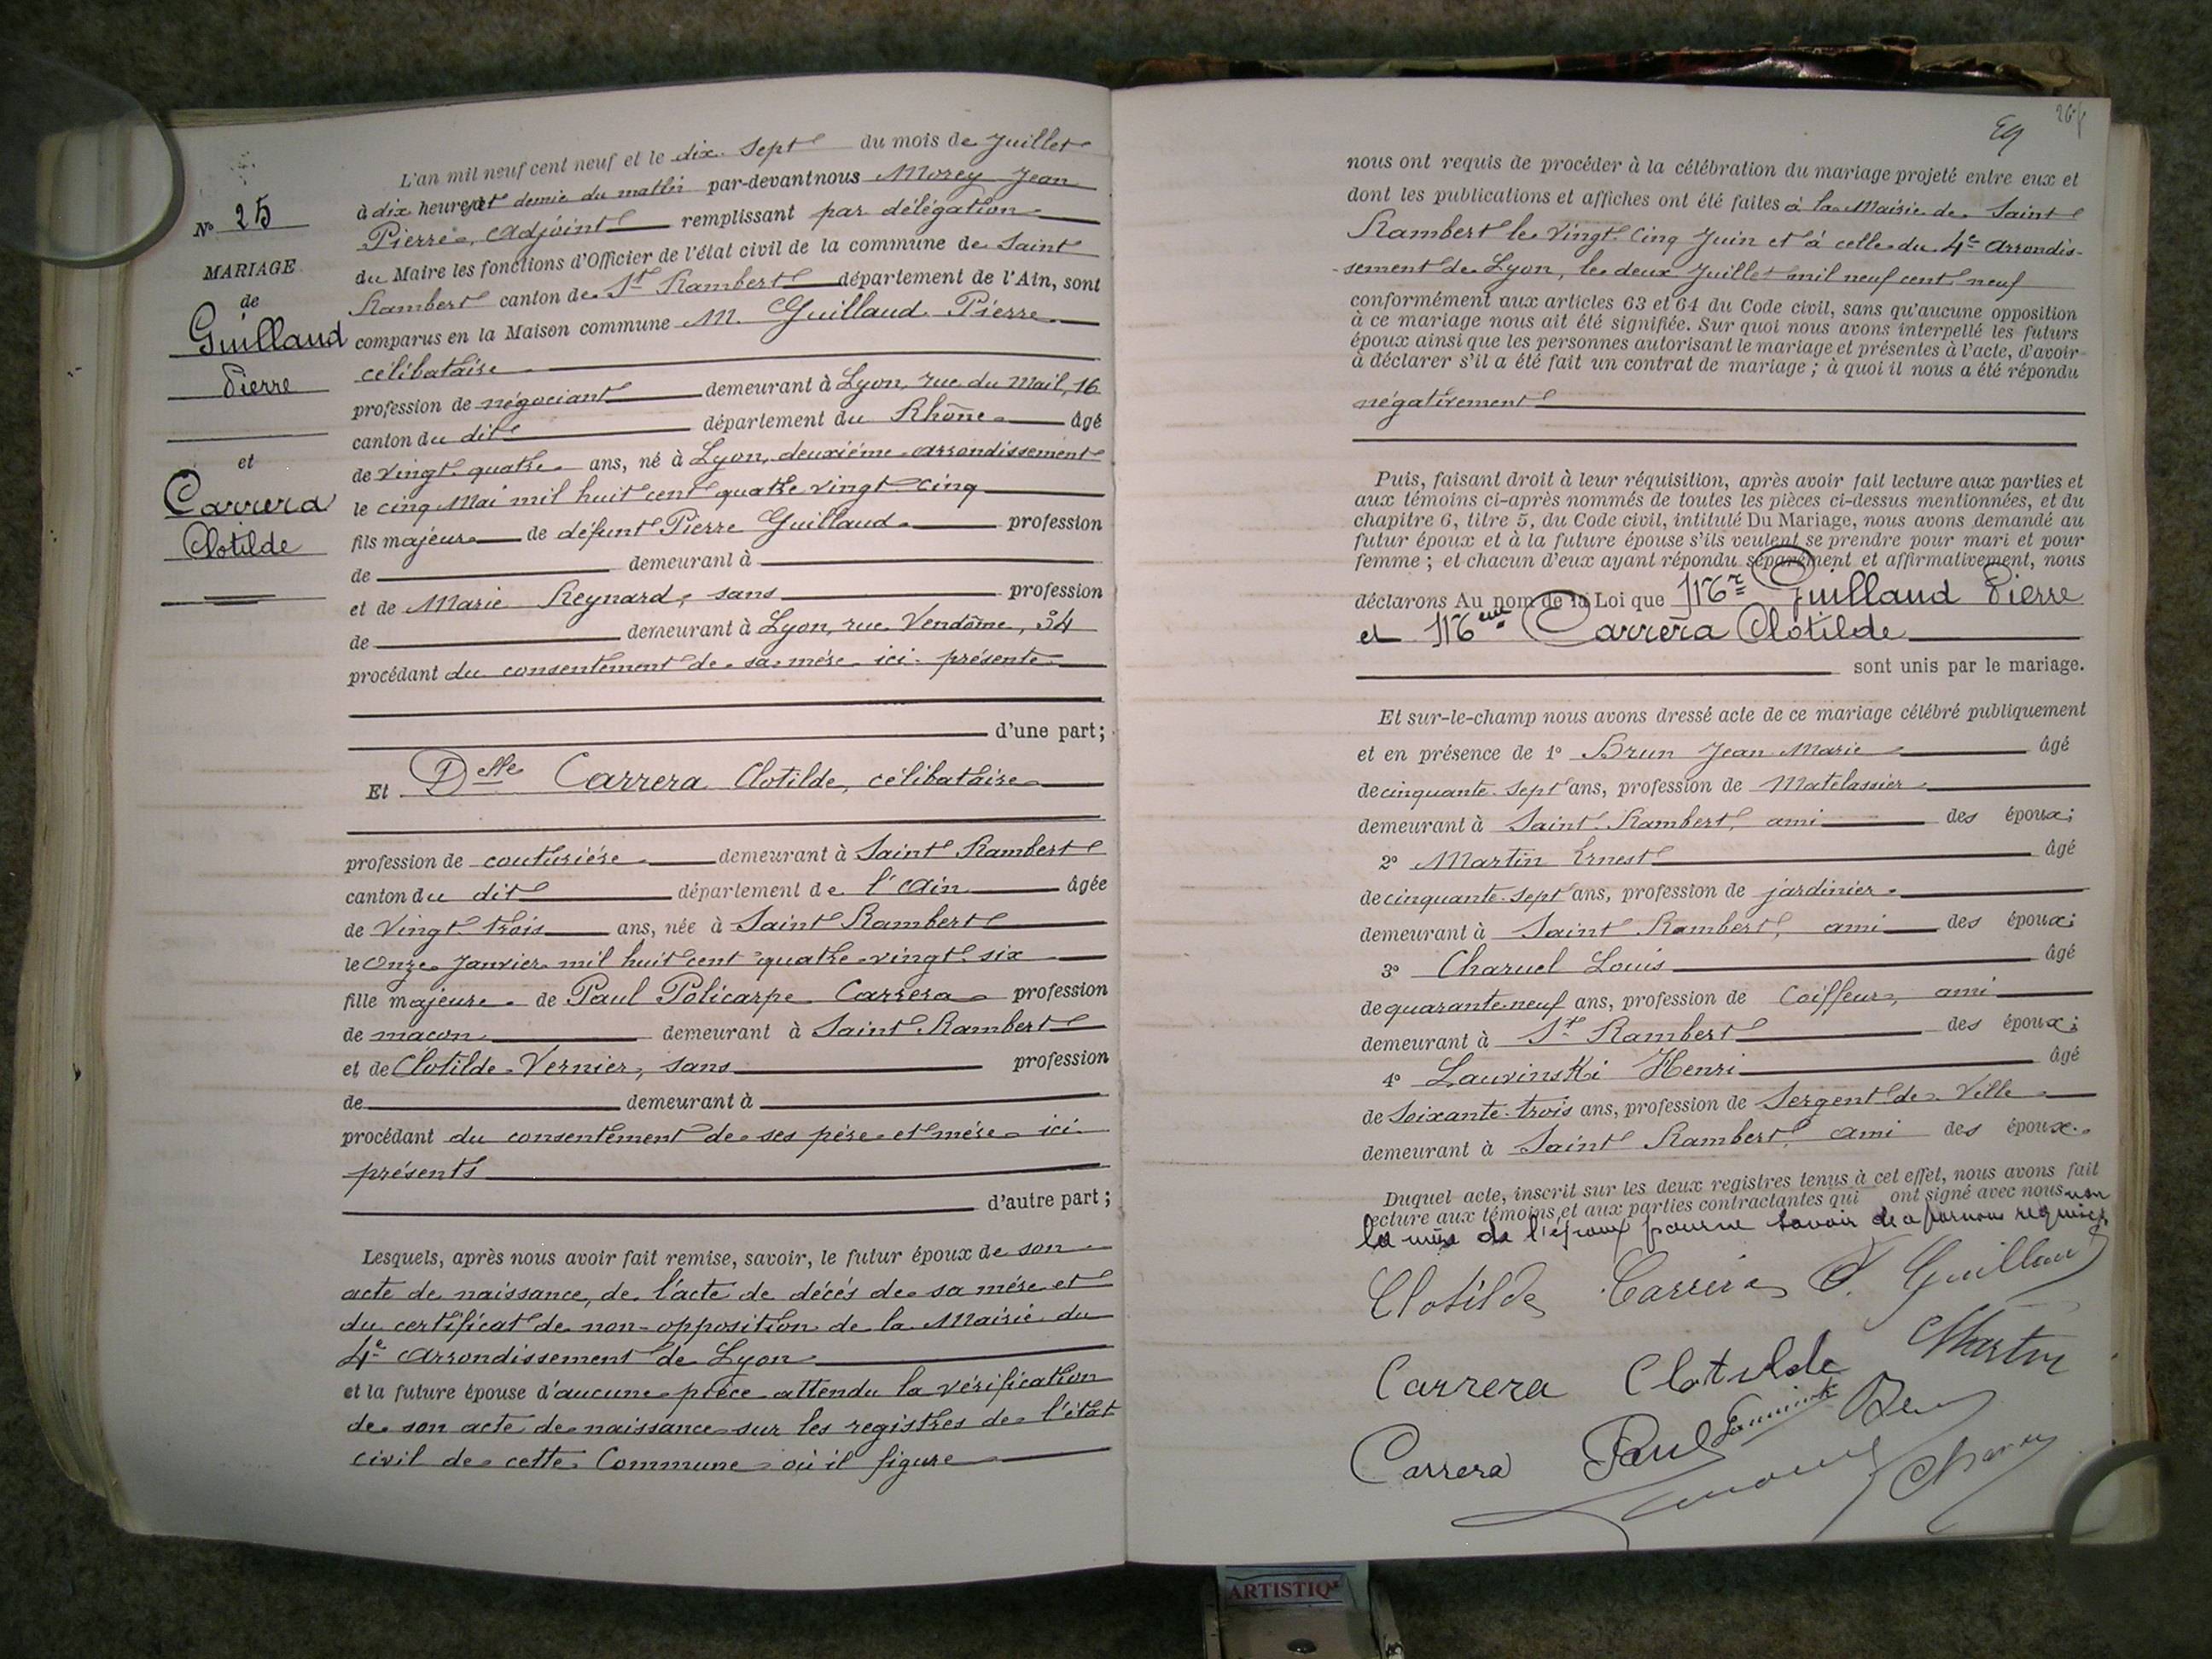 N° 25
MARIAGE
de
Guillaud
Pierre
et
Carrera
Clotilde
L'an mil neuf cent neuf et le dix-sept du mois de Juillet
à dix heures et demie du matin par-devant nous Morey Jean
Pierre, Adjoint remplissant par délégation
du Maire les fonctions d'Officier de l'état civil de la commune de Saint
Rambert canton de St Rambert département de l'Ain, sont
comparus en la Maison commune M. Guillaud Pierre
célibataire
profession de négociant demeurant à Lyon, rue du Mail, 16
canton du dit département du Rhône âgé
de vingt-quatre ans, né à Lyon, deuxième arrondissement
le cinq Mai mil huit cent quatre vingt cinq
fils majeur de défunt Pierre Guillaud profession
de demeurant à
et de Marie Reynard, sans profession
de demeurant à Lyon, rue Vendôme, 34
procédant du consentement de sa mère ici présente
d'une part;
Et Delle Carrera Clotilde, célibataire
profession de couturière demeurant à Saint Rambert
canton du dit département de l'Ain âgée
de vingt trois ans, née à Saint Rambert
le onze Janvier mil huit cent quatre vingt six
fille majeure de Paul Policarpe Carrera profession
de maçon demeurant à Saint Rambert
et de Clotilde Vernier, sans profession
de demeurant à
procédant du consentement de ses père et mère ici
présents
d'autre part;
Lesquels, après nous avoir fait remise, savoir, le futur époux de son
acte de naissance, de l'acte de décès de sa mère et
du certificat de non-opposition de la Mairie du
4e arrondissement de Lyon
et la future épouse d'aucune pièce attendu la vérification
de son acte de naissance sur les registres de l'état
civil de cette Commune où il figure
29
nous ont requis de procéder à la célébration du mariage projeté entre eux et
dont les publications et affiches ont été faites à la Mairie de Saint
Rambert le vingt cinq Juin et à celle du 4e arrondis-
-sement de Lyon, le deux Juillet mil neuf cent neuf
conformément aux articles 63 et 64 du Code civil, sans qu'aucune opposition
à ce mariage nous ait été signifiée. Sur quoi nous avons interpellé les futurs
époux ainsi que les personnes autorisant le mariage et présentes à l'acte, d'avoir
à déclarer s'il a été fait un contrat de mariage; à quoi il nous a été répondu
négativement
Puis, faisant droit à leur réquisition, après avoir fait lecture aux parties et
aux témoins ci-après nommés de toutes les pièces ci-dessus mentionnées, et du
chapitre 6, titre 5, du Code civil, intitulé Du Mariage, nous avons demandé au
futur époux et à la future épouse s'ils veulent se prendre pour mari et pour
femme; et chacun d'eux ayant répondu séparément et affirmativement, nous
déclarons Au nom de la Loi que Mr Guillaud Pierre
et Melle Carrera Clotilde
sont unis par le mariage.
Et sur-le-champ nous avons dressé acte de ce mariage célébré publiquement
et en présence de 1° Brun Jean Marie âgé
de cinquante sept ans, profession de Matelassier
demeurant à Saint Rambert, ami des époux;
2° Martin Ernest âgé
de cinquante-sept ans, profession de jardinier
demeurant à Saint Rambert, ami des époux;
3° Charuel Louis âgé
de quarante-neuf ans, profession de Coiffeur, ami
demeurant à St Rambert des époux;
4° Lauvinski Henri âgé
de soixante-trois ans, profession de Sergent de Ville
demeurant à Saint Rambert ami des époux.
Duquel acte, inscrit sur les deux registres tenus à cet effet, nous avons fait
lecture aux témoins et aux parties contractantes qui ont signé avec nous non
la mère de l'époux pour ne savoir de ce par nous requise
Clotilde Carrera P. Guillaud
Carrera Clotilde Martin
Carrera Paul
ARTISTIQ